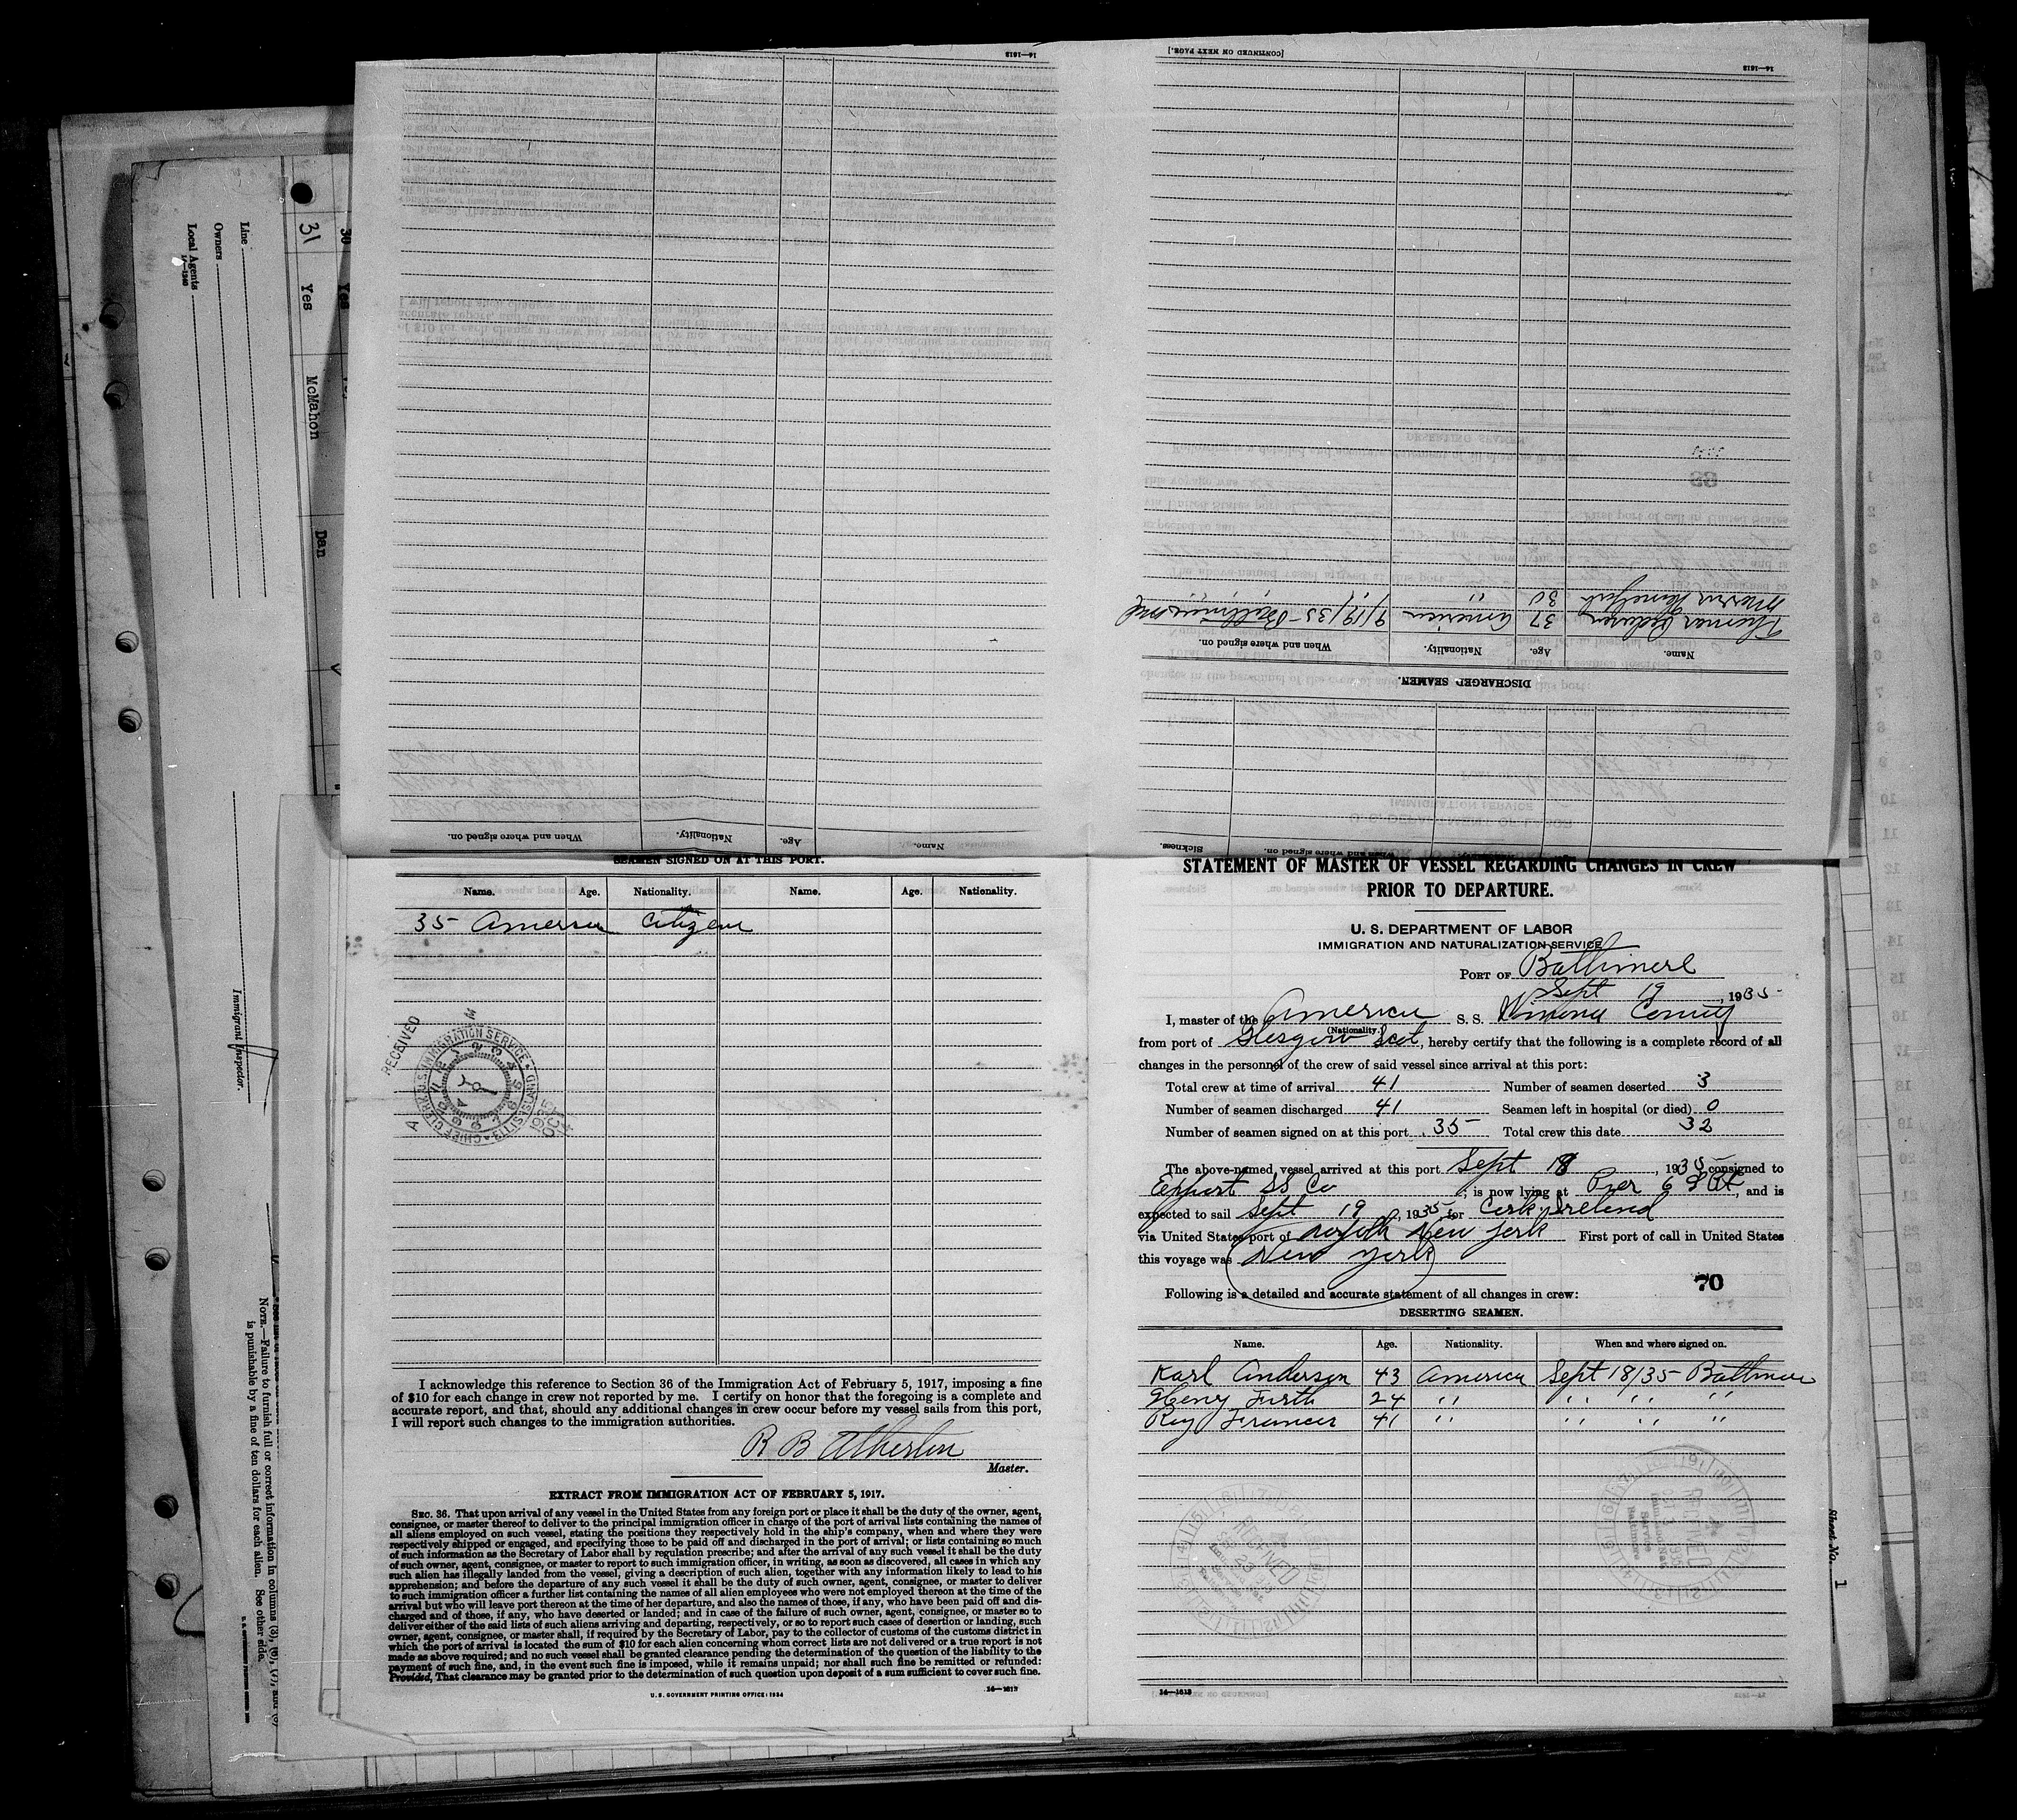 14—1613
[CONTINUED ON NEXT PAGE.]
14—1613
Name. Age. Nationality. When and where signed on.
DISCHARGED SEAMEN.
Name. Age. Nationality. When and where signed on.
Thomas Pedersen 37 America 9/19/35 - Baltimore Md
30 " "
When and where signed on. Sickness.
Line
Owners
Local Agents
14—1240
Immigrant Inspector.
30 Yes
31 Yes McMahon Dan
NOTE.—Failure to furnish full or correct information in columns (3), (6), (7), and (8)
is punishable by a fine of ten dollars for each alien. See other side.
SEAMEN SIGNED ON AT THIS PORT.
Name. Age. Nationality. Name. Age. Nationality.
35 American Citizens
RECEIVED
U.S. IMMIGRATION SERVICE
CHIEF CLERK
ELLIS ISLAND
I acknowledge this reference to Section 36 of the Immigration Act of February 5, 1917, imposing a fine
of $10 for each change in crew not reported by me. I certify on honor that the foregoing is a complete and
accurate report, and that, should any additional changes in crew occur before my vessel sails from this port,
I will report such changes to the immigration authorities.
R B Atherton
Master.
EXTRACT FROM IMMIGRATION ACT OF FEBRUARY 5, 1917.
SEC. 36. That upon arrival of any vessel in the United States from any foreign port or place it shall be the duty of the owner, agent,
consignee, or master thereof to deliver to the principal immigration officer in charge of the port of arrival lists containing the names of
all aliens employed on such vessel, stating the positions they respectively hold in the ship's company, when and where they were
respectively shipped or engaged, and specifying those to be paid off and discharged in the port of arrival; or lists containing so much
of such information as the Secretary of Labor shall by regulation prescribe; and after the arrival of any such vessel it shall be the duty
of such owner, agent, consignee, or master to report to such immigration officer, in writing, as soon as discovered, all cases in which any
such alien has illegally landed from the vessel, giving a description of such alien, together with any information likely to lead to his
apprehension; and before the departure of any such vessel it shall be the duty of such owner, agent, consignee, or master to deliver
to such immigration officer a further list containing the names of all alien employees who were not employed thereon at the time of the
arrival but who will leave port thereon at the time of her departure, and also the names of those, if any, who have been paid off and dis-
charged and of those, if any, who have deserted or landed; and in case of the failure of such owner, agent, consignee, or master so to
deliver either of the said lists of such aliens arriving and departing, respectively, or so to report such cases of desertion or landing, such
owner, agent, consignee, or master shall, if required by the Secretary of Labor, pay to the collector of customs of the customs district in
which the port of arrival is located the sum of $10 for each alien concerning whom correct lists are not delivered or a true report is not
made as above required; and no such vessel shall be granted clearance pending the determination of the question of the liability to the
payment of such fine, and, in the event such fine is imposed, while it remains unpaid; nor shall such fine be remitted or refunded:
Provided, That clearance may be granted prior to the determination of such question upon deposit of a sum sufficient to cover such fine.
U. S. GOVERNMENT PRINTING OFFICE: 1934
14—1613
STATEMENT OF MASTER OF VESSEL REGARDING CHANGES IN CREW
PRIOR TO DEPARTURE.
U. S. DEPARTMENT OF LABOR
IMMIGRATION AND NATURALIZATION SERVICE
PORT OF Baltimore
Sept 19, 1935
I, master of the American S. S. Winona County
(Nationality.)
from port of Glasgow Scot, hereby certify that the following is a complete record of all
changes in the personnel of the crew of said vessel since arrival at this port:
Total crew at time of arrival 41 Number of seamen deserted 3
Number of seamen discharged 41 Seamen left in hospital (or died) 0
Number of seamen signed on at this port 35 Total crew this date 32
The above-named vessel arrived at this port Sept 18, 1935 consigned to
Export SS Co; is now lying at Pier 6, and is
expected to sail Sept 19, 1935, for Cork Ireland
via United States port of Norfolk New York First port of call in United States
this voyage was New York
70
Following is a detailed and accurate statement of all changes in crew:
DESERTING SEAMEN.
Name. Age. Nationality. When and where signed on.
Karl Anderson 43 America Sept 18/35 Baltimore
Henry Furth 24 " " " " "
Roy Frances 41 " " " " "
RECEIVED
RECEIVED
14—1613
Sheet No. 1